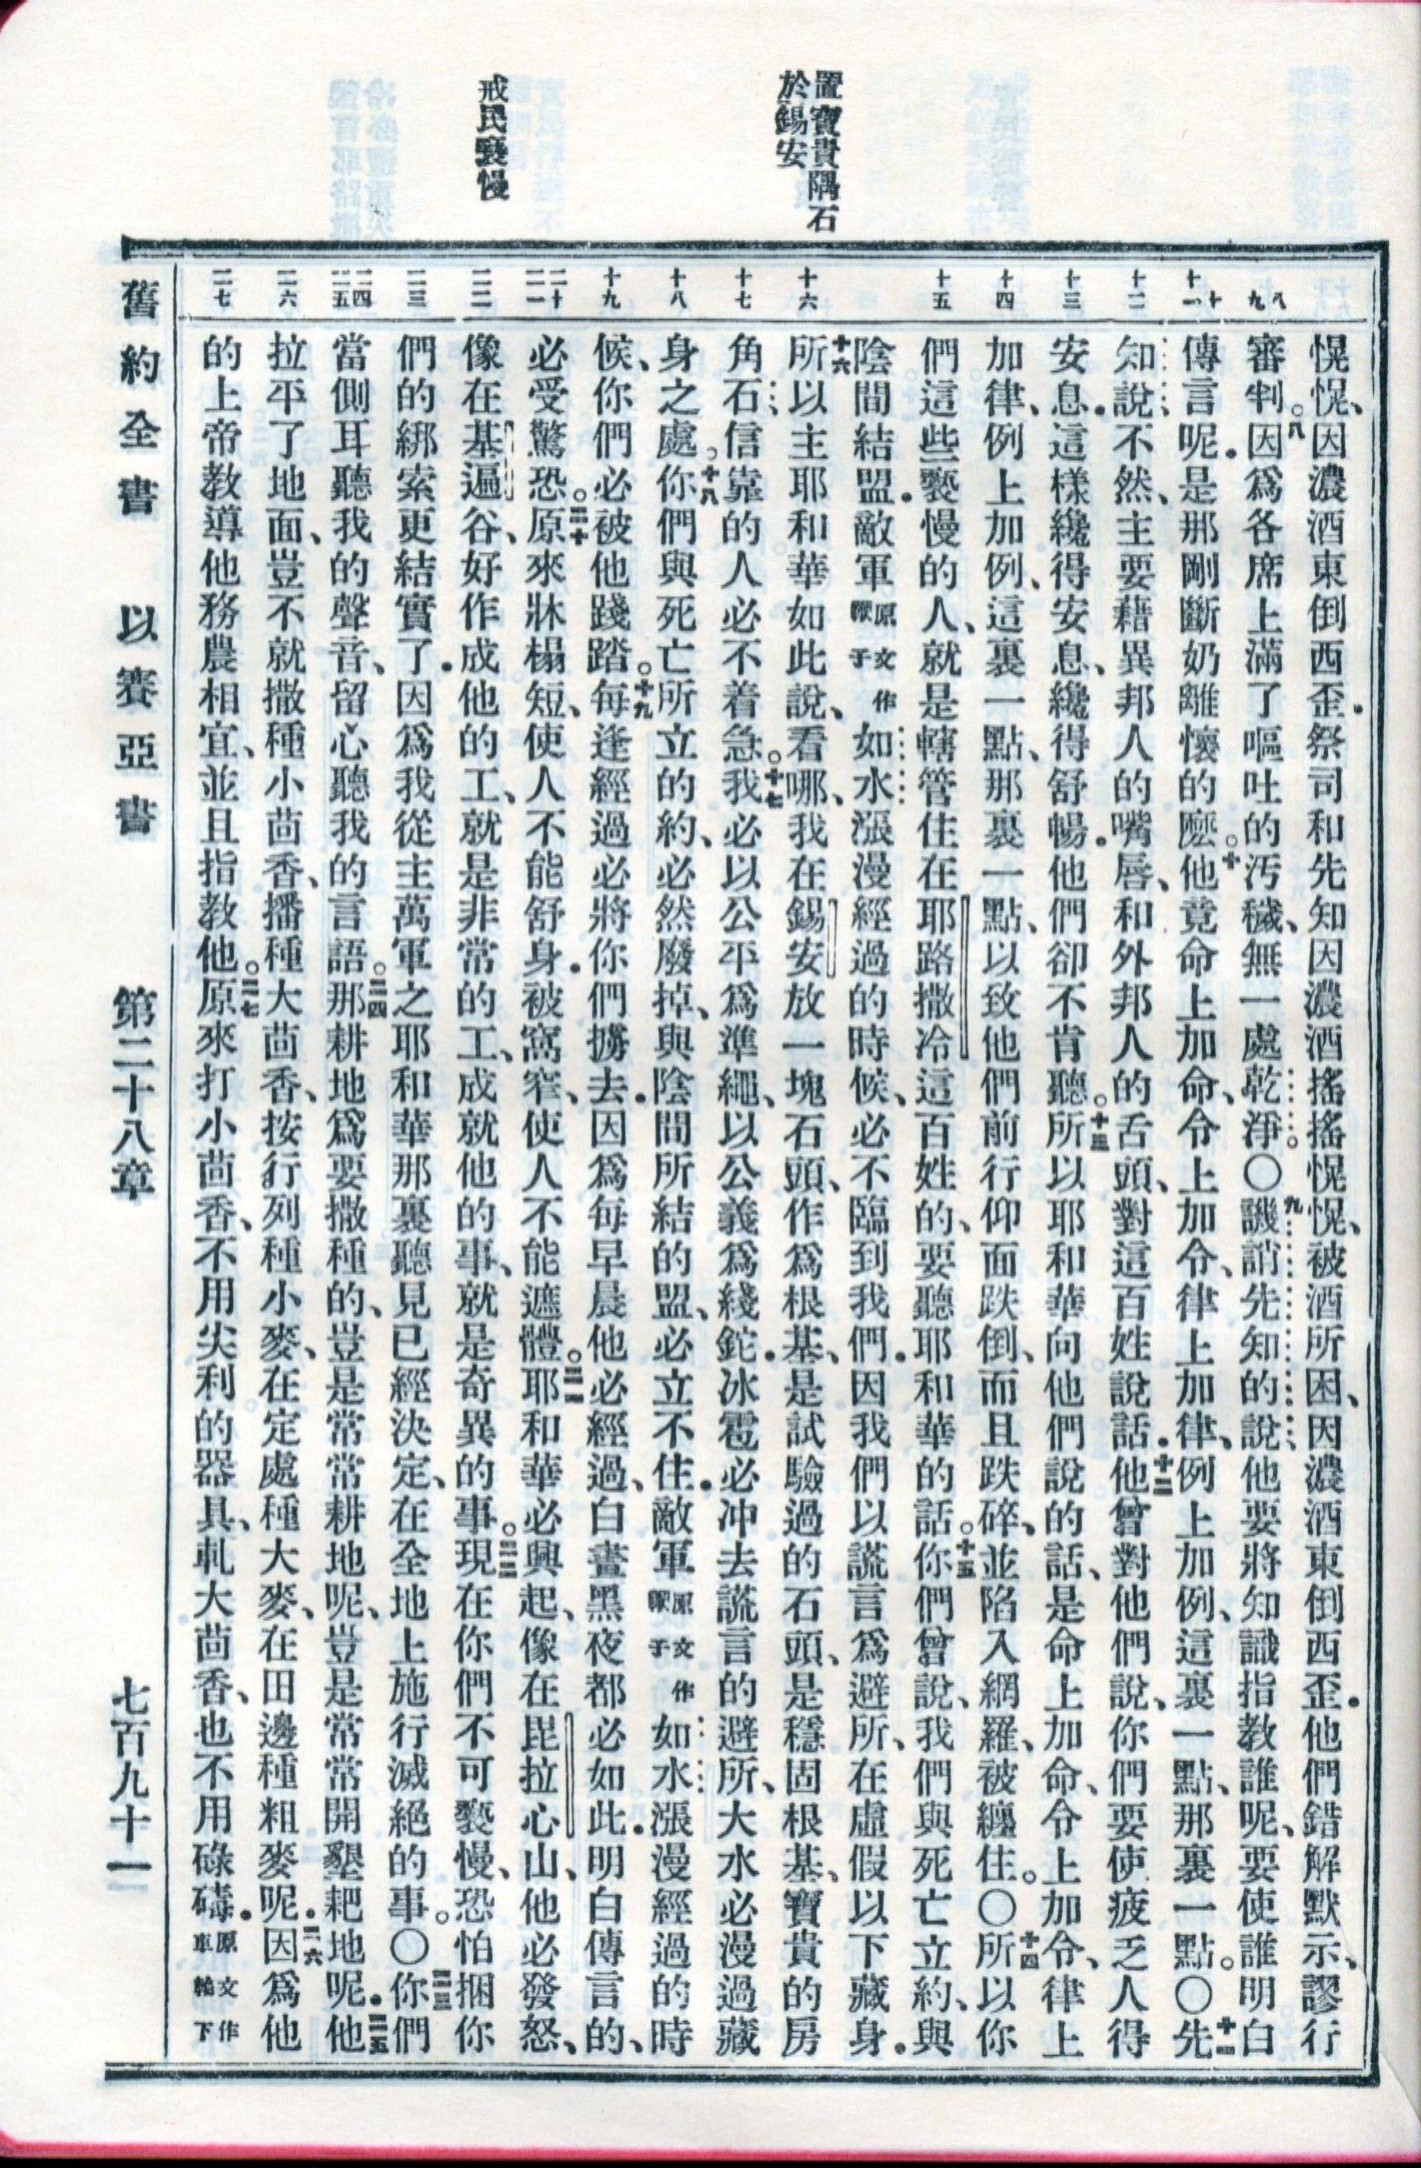 置寶貴隅石
於錫安
戒民褻慢
八
九
十
十一
十二
十三
十四
十五
十六
十七
十八
十九
二十
二一
二二
二三
二四
二五
二六
二七
愰愰、因濃酒東倒西歪.祭司和先知因濃酒搖搖愰愰、被酒所困、因濃酒東倒西歪.他們錯解默示、謬行
審判。八因爲各席上滿了嘔吐的汚穢、無一處乾淨。〇九譏誚先知的說、他要將知識指教誰呢、要使誰明白
傳言呢.是那剛斷奶離懷的麼。十他竟命上加命、令上加令、律上加律、例上加例、這裏一點、那裏一點。〇十一先
知說、不然、主要藉異邦人的嘴唇、和外邦人的舌頭、對這百姓說話.十二他曾對他們說、你們要使疲乏人得
安息.這樣纔得安息、纔得舒暢.他們卻不肯聽。十三所以耶和華向他們說的話、是命上加命、令上加令、律上
加律、例上加例、這裏一點、那裏一點、以致他們前行仰面跌倒、而且跌碎、並陷入網羅、被纏住。〇十四所以你
們這些褻慢的人、就是轄管住在耶路撒冷這百姓的、要聽耶和華的話。十五你們曾說、我們與死亡立約、與
陰間結盟.敵軍原文作鞭子如水漲漫經過的時候、必不臨到我們.因我們以謊言爲避所、在虛假以下藏身.
十六所以主耶和華如此說、看哪、我在錫安放一塊石頭、作爲根基、是試驗過的石頭、是穩固根基、寶貴的房
角石、信靠的人必不着急。十七我必以公平爲準繩、以公義爲綫鉈.冰雹必冲去謊言的避所、大水必漫過藏
身之處。十八你們與死亡所立的約、必然廢掉、與陰間所結的盟、必立不住.敵軍原文作鞭子如水漲漫經過的時
候、你們必被他踐踏。十九每逢經過必將你們擄去.因爲每早晨他必經過、白晝黑夜都必如此.明白傳言的、
必受驚恐。二十原來牀榻短、使人不能舒身.被窩窄、使人不能遮體。二一耶和華必興起、像在毘拉心山、他必發怒、
像在基遍谷、好作成他的工、就是非常的工、成就他的事、就是奇異的事。二二現在你們不可褻慢、恐怕捆你
們的綁索更結實了.因爲我從主萬軍之耶和華那裏聽見、已經決定、在全地上施行滅絕的事。〇二三你們
當側耳聽我的聲音、留心聽我的言語。二四那耕地爲要撒種的、豈是常常耕地呢、豈是常常開墾耙地呢.二五他
拉平了地面、豈不就撒種小茴香、播種大茴香、按行列種小麥、在定處種大麥、在田邊種粗麥呢.二六因爲他
的上帝教導他務農相宜、並且指教他。二七原來打小茴香、不用尖利的器具、軋大茴香、也不用碌碡.原文作車輪下
舊約全書　以賽亞書　第二十八章　七百九十一